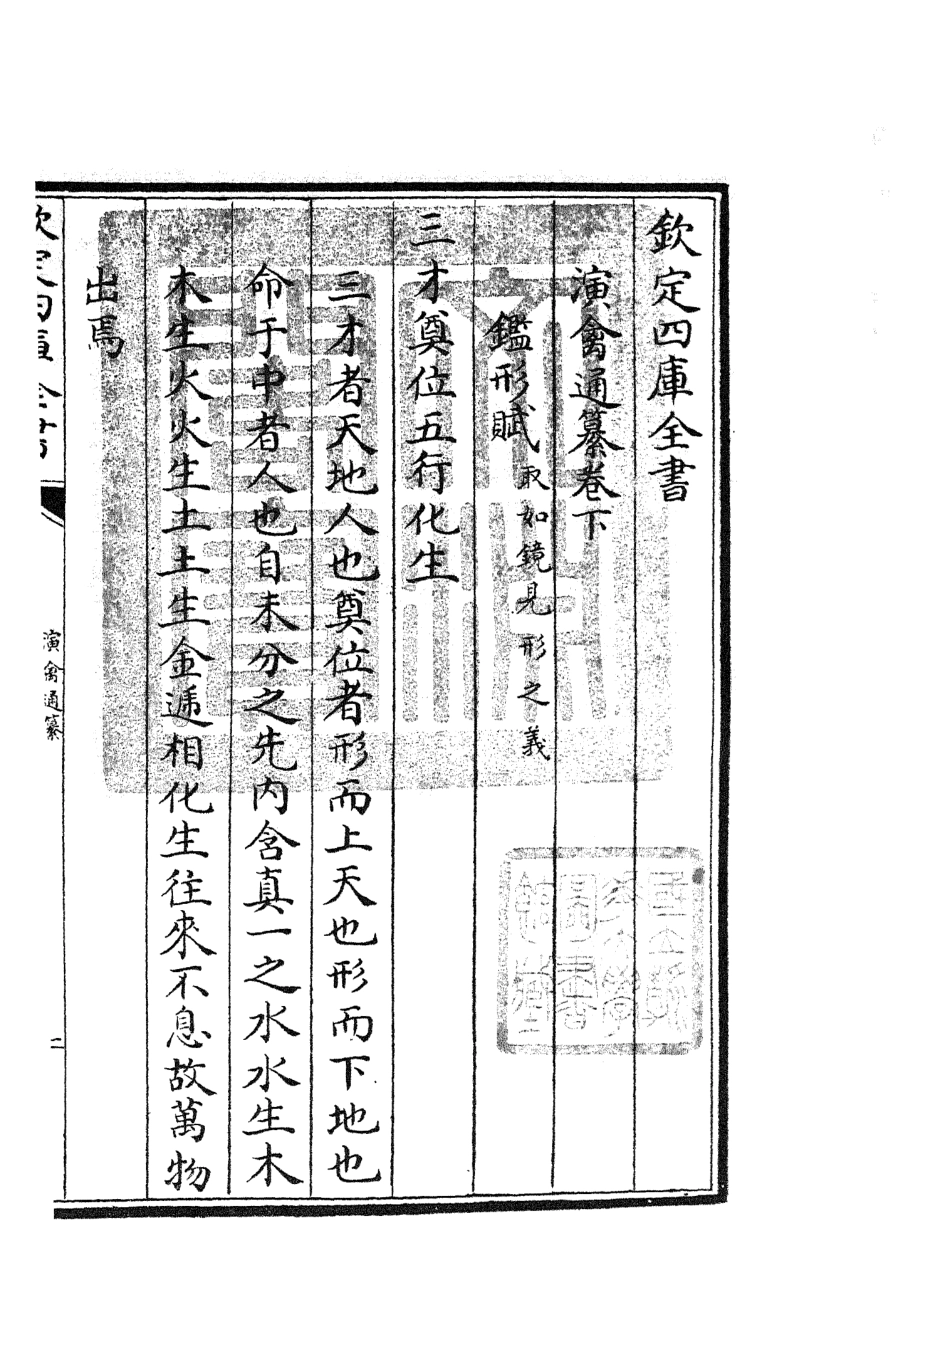 欽定四庫全書
演禽通纂卷下
鑑形賦取如鏡見形之義
三才奠位五行化生
三才者天地人也奠位者形而上天也形而下地也
命于中者人也自未分之先内含真一之水水生木
木生火火生土土生金遞相化生往來不息故萬物
出焉
欽定四庫全書
演禽通纂
二